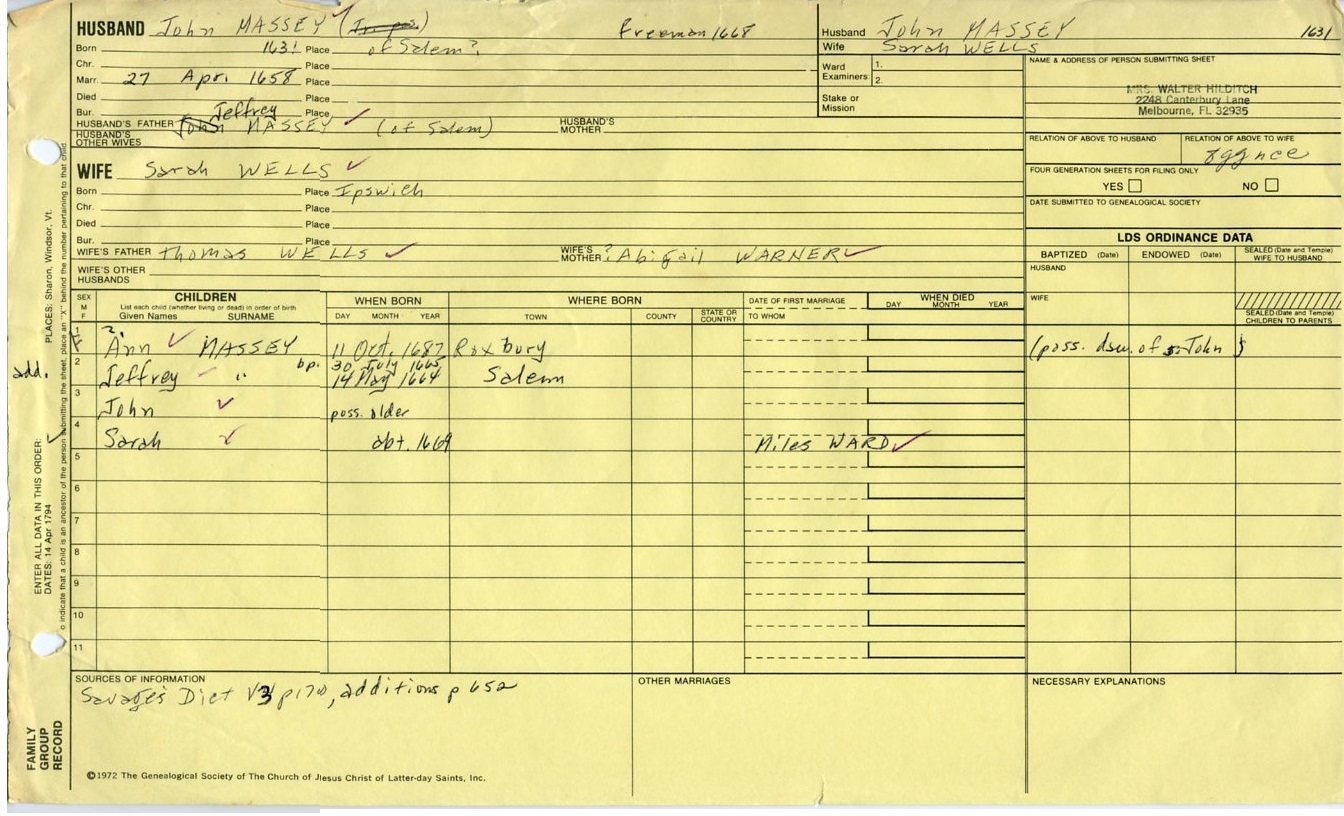 HUSBAND John MASSEY Freeman 1668
Born 1631 Place of Salem?
Chr. Place
Marr. 27 Apr. 1658 Place
Died Place
Bur. Place
HUSBAND'S FATHER John Jeffrey MASSEY (of Salem) HUSBAND'S MOTHER
HUSBAND'S OTHER WIVES
WIFE Sarah WELLS
Born Place Ipswich
Chr. Place
Died Place
Bur. Place
WIFE'S FATHER thomas WELLS WIFE'S MOTHER ? Abigail WARNER
WIFE'S OTHER HUSBANDS
Husband John MASSEY 1631
Wife Sarah WELLS
Ward 1.
Examiners: 2.
Stake or Mission
NAME & ADDRESS OF PERSON SUBMITTING SHEET
MRS. WALTER HILDITCH
2248 Canterbury Lane
Melbourne, FL 32935
RELATION OF ABOVE TO HUSBAND RELATION OF ABOVE TO WIFE
8ggnce
FOUR GENERATION SHEETS FOR FILING ONLY
YES NO
DATE SUBMITTED TO GENEALOGICAL SOCIETY
LDS ORDINANCE DATA
BAPTIZED (Date) ENDOWED (Date) SEALED (Date and Temple) WIFE TO HUSBAND
HUSBAND
WIFE
SEALED (Date and Temple) CHILDREN TO PARENTS
SEX M F CHILDREN WHEN BORN WHERE BORN DATE OF FIRST MARRIAGE WHEN DIED
List each child (whether living or dead) in order of birth
Given Names SURNAME DAY MONTH YEAR TOWN COUNTY STATE OR COUNTRY TO WHOM DAY MONTH YEAR
1 F ? Ann MASSEY 11 Oct. 1687 Roxbury (poss. dau. of John)
add. 2 Jeffrey " bp. 30 July 1665
14 May 1664 Salem
3 John poss. older
4 Sarah abt. 1669 Miles WARD
5
6
7
8
9
10
11
SOURCES OF INFORMATION
Savage's Dict V3 p170, additions p 652
OTHER MARRIAGES
NECESSARY EXPLANATIONS
©1972 The Genealogical Society of The Church of Jiesus Christ of Latter-day Saints, Inc.
FAMILY GROUP RECORD
ENTER ALL DATA IN THIS ORDER:
DATES: 14 Apr 1794
PLACES: Sharon, Windsor, Vt.
o indicate that a child is an ancestor of the person submitting the sheet, place an "X" behind the number pertaining to that child